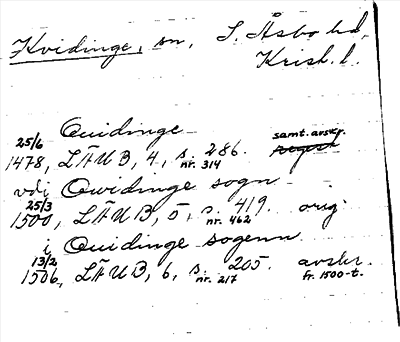 Kvidinge, sn, S. Åsbo hd,
Krist. l.
Quidinge
25/6 1478, LÄUB, 4, s. 286. nr. 314 samt. avskr.
vdi Qwidinge sogn
25/3 1500, LÄUB, 5, s. 419. nr. 462 orig.
i Quidinge sogenn
13/2 1506, LÄUB, 6, s. 205. nr. 217 avskr. fr. 1500-t.